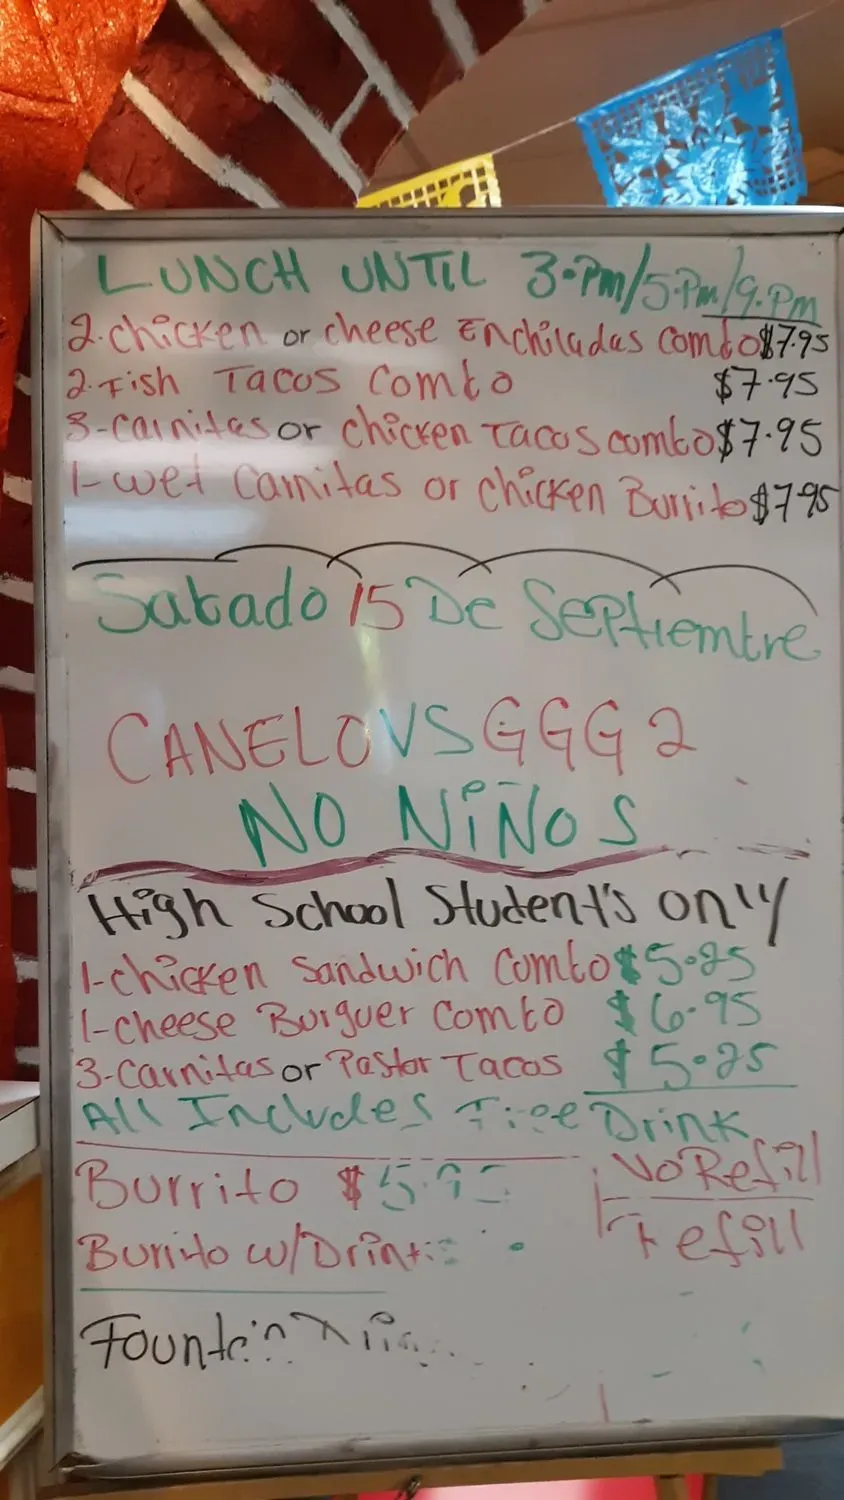 LUNCH UNTIL 3·Pm/5·Pm/9·Pm
2·chicken or cheese Enchiladas combo $7.95
2·Fish Tacos combo $7.95
3-carnitas or chicken Tacos combo $7.95
1-wet carnitas or chicken Burrito $7.95
Sabado 15 De Septiembre
CANELO VS GGG 2
NO NiÑOS
High School Student's only
1-chicken Sandwich combo $5.25
1-cheese Burguer combo $6.95
3-carnitas or Pastor Tacos $5.25
All Includes Free Drink
Burrito No Refill
Burrito w/Drink Refill